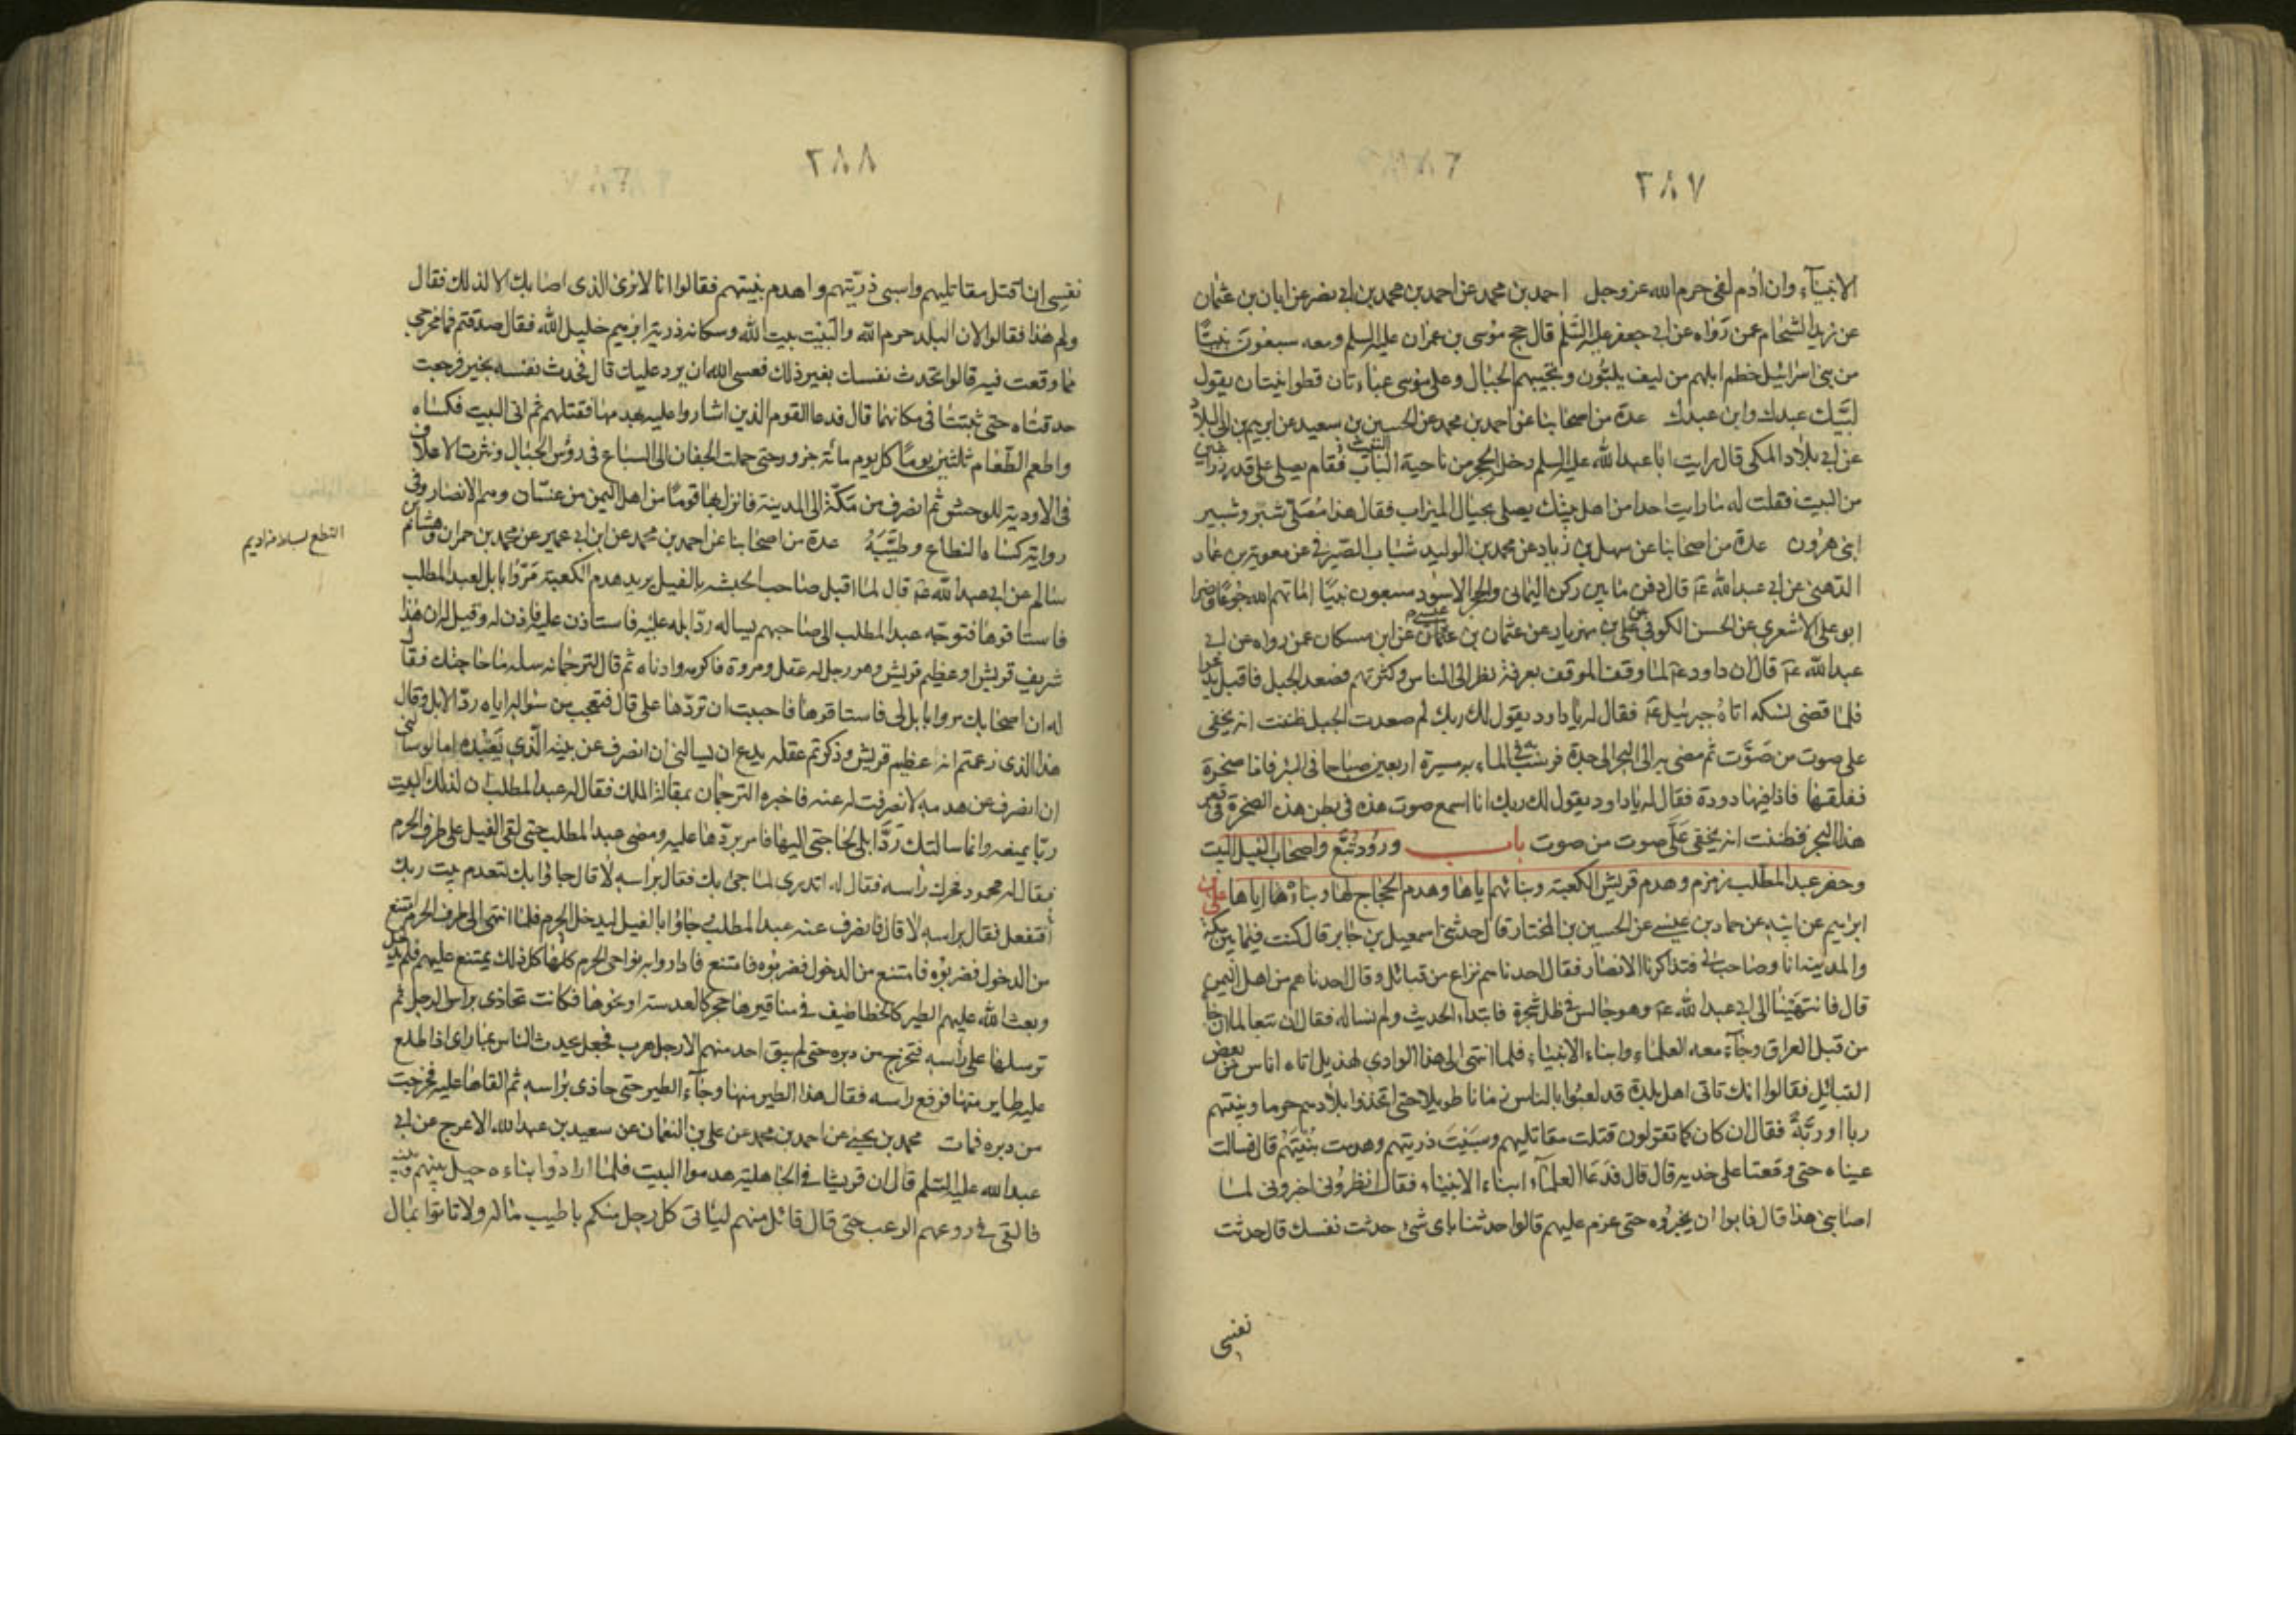 ٢٨٧
الانبياء وان ادم لفى حرم الله عز وجل احمد بن محمد عن احمد بن محمد بن ابى نصر عن ابان بن عثمان
عن زيد الشحام عمن رواه عن ابى جعفر عليه السلم قال حج موسى بن عمران عليه السلم ومعه سبعون نبيا
من بنى اسرائيل خطم ابلهم من ليف يلبون وتجيبهم الجبال وعلى موسى عباءتان قطوانيتان يقول
لبيك عبدك وابن عبدك عدة من اصحابنا عن احمد بن محمد عن الحسين بن سعيد عن ابرهيم بن ابى البلاد
عن ابى بلاد المكى قال رايت ابا عبد الله عليه السلم دخل الحجر من ناحية الباب فقام يصلى على قدر ذراعين
من البيت فقلت له ما رايت احدا من اهل بيتك يصلى بحيال الميزاب فقال هذا مصلى شبر وشبير
ابنى هرون عدة من اصحابنا عن سهل بن زياد عن محمد بن الوليد شباب الصيرفى عن معوية بن عمار
الدهنى عن ابى عبد الله ع قال دفن ما بين ركن اليمانى والحجر الاسود سبعون نبيا اماتهم الله جوعا وضرا
ابو على الاشعرى عن الحسن الكوفى عن على بن مهزيار عن عثمان بن عيسى عن ابن مسكان عمن رواه عن ابى
عبد الله ع قال ان داود ع لما وقف الموقف بعرفة نظر الى الناس وكثرتهم فصعد الجبل فاقبل يدعوا
فلما قضى نسكه اتاه جبرئيل ع فقال له يا داود يقول لك ربك لم صعدت الجبل ظننت انه يخفى
على صوت من صوت ثم مضى به الى البحر الى جدة فرسب به فى الماء مسيرة اربعين صباحا فى البر فاذا صخرة
ففلقها فاذا فيها دودة فقال له يا داود يقول لك ربك انا اسمع صوت هذه فى بطن هذه الصخرة فى قعر
هذا البحر فظننت انه يخفى على صوت من صوت باب ورود تبع واصحاب الفيل البيت
وحفر عبد المطلب زمزم وهدم قريش الكعبة وبنائهم اياها وهدم الحجاج لها وبنائها اياها على بن
ابرهيم عن ابيه عن حماد بن عيسى عن الحسين بن المختار قال حدثنى اسمعيل بن جابر قال كنت فيما بين مكة
والمدينة انا وصاحب لى فتذاكرنا الانصار فقال احدنا هم نزاع من قبائل وقال احدنا هم من اهل اليمن
قال فانتهينا الى ابى عبد الله ع وهو جالس فى ظل شجرة فابتداء الحديث ولم نساله فقال ان تبعا لما ان جاء
من قبل العراق وجاء معه العلماء وابناء الانبياء فلما انتهى الى هذا الوادى لهذيل اتاه اناس من بعض
القبائل فقالوا انك تاتى اهل بلدة قد لعبوا بالناس زمانا طويلا حتى اتخذوا بلادهم حرما وبنيتهم
ربا او ربة فقال ان كان كما تقولون قتلت مقاتليهم وسبيت ذريتهم وهدمت بنيتهم قال فسالت
عيناه حتى وقعتا على خديه قال قال فدعا العلماء ابناء الانبياء فقال انظرونى اخبرونى لما
اصابنى هذا قال فابوا ان يخبروه حتى عزم عليهم قالوا حدثنا باى شئ حدثت نفسك قال حدثت
نفسى
٢٨٨
نفسى ان اقتل مقاتليهم واسبى ذريتهم واهدم بنيتهم فقالوا انا لا نرى الذى اصابك الا لذلك فقال
ولم هذا فقالوا لان البلد حرم الله والبيت بيت الله وسكانه ذرية ابرهيم خليل الله فقال صدقتم فما مخرجى
مما وقعت فيه قالوا تحدث نفسك بغير ذلك فعسى الله ان يرد عليك قال فحدث نفسه بخير فرجعت
حدقتاه حتى ثبتتا فى مكانهما قال فدعا القوم الذين اشاروا عليه بهدمها فقتلهم ثم اتى البيت فكساه
واطعم الطعام ثلثين يوما كل يوم مائة جزور حتى حملت الجفان الى السباع فى رؤس الجبال ونثرت الاعلاف
فى الاودية للوحش ثم انصرف من مكة الى المدينة فانزل بها قوما من اهل اليمن من غسان وهم الانصار وفى
رواية كساه النطاع وطيبه عدة من اصحابنا عن احمد بن محمد عن ابن ابى عمير عن محمد بن حمران وهشام بن
سالم عن ابى عبد الله ع قال لما اقبل صاحب الحبشة بالفيل يريد هدم الكعبة مروا بابل لعبد المطلب
فاستاقوها فتوجه عبد المطلب الى صاحبهم يساله رد ابله عليه فاستاذن عليه فاذن له وقيل له ان هذا
شريف قريش او عظيم قريش وهو رجل له عقل ومروة فاكرمه وادناه ثم قال لترجمانه سله ما حاجتك فقال
له ان اصحابك مروا بابل لى فاستاقوها فاحببت ان تردها على قال فتعجب من سؤاله اياه رد الابل وقال
هذا الذى زعمتم انه عظيم قريش وذكرتم عقله يدع ان يسالنى ان انصرف عن بيته الذى يعبده اما لو سالنى
ان انصرف عن هدمه لانصرفت له عنه فاخبره الترجمان بمقالة الملك فقال له عبد المطلب ان لذلك البيت
ربا يمنعه وانما سالتك رد ابلى لحاجتى اليها فامر بردها عليه ومضى عبد المطلب حتى لقى الفيل على طرف الحرم
فقال له محمود فحرك راسه فقال له اتدرى لما جئ بك فقال براسه لا قال جاؤا بك لتهدم بيت ربك
افتفعل فقال براسه لا قال فانصرف عنه عبد المطلب وجاؤا بالفيل ليدخل الحرم فلما انتهى الى طرف الحرم امتنع
من الدخول فضربوه فامتنع من الدخول فضربوه فامتنع فاداروا به نواحى الحرم كلها كل ذلك يمتنع عليهم فلم يدخل
وبعث الله عليهم الطير كالخطاطيف فى مناقيرها حجر كالعدسة او نحوها فكانت تحاذى براس الرجل ثم
ترسلها على راسه فتخرج من دبره حتى لم يبق احد منهم الا رجل هرب فجعل يحدث الناس بما راى اذا طلع
عليه طاير منها فرفع راسه فقال هذا الطير منها وجاء الطير حتى حاذى براسه ثم القاها عليه فخرجت
من دبره فمات محمد بن يحيى عن احمد بن محمد عن على بن النعمان عن سعيد بن عبد الله الاعرج عن ابى
عبد الله عليه السلم قال ان قريشا فى الجاهلية هدموا البيت فلما ارادوا بناءه حيل بينهم وبينه
فالقى فى روعهم الرعب حتى قال قائل منهم ليأتى كل رجل منكم باطيب ماله ولا تاتوا بمال